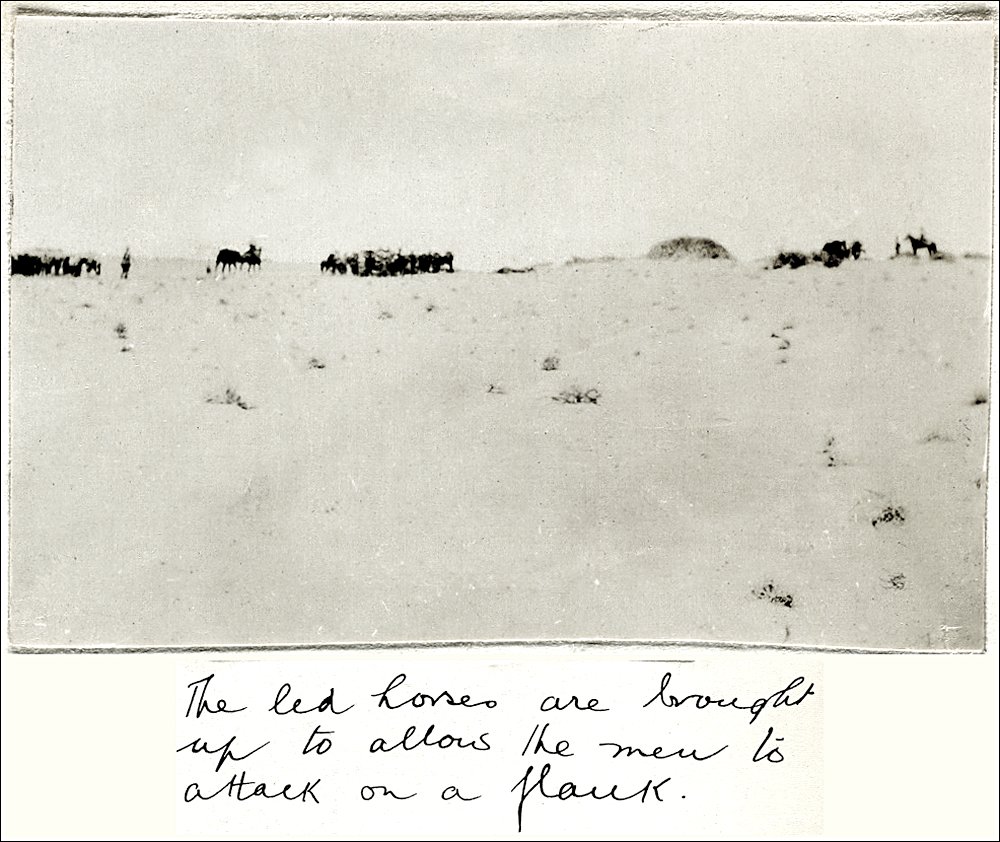 The led horses are brought
up to allow the men to
attack on a flank.